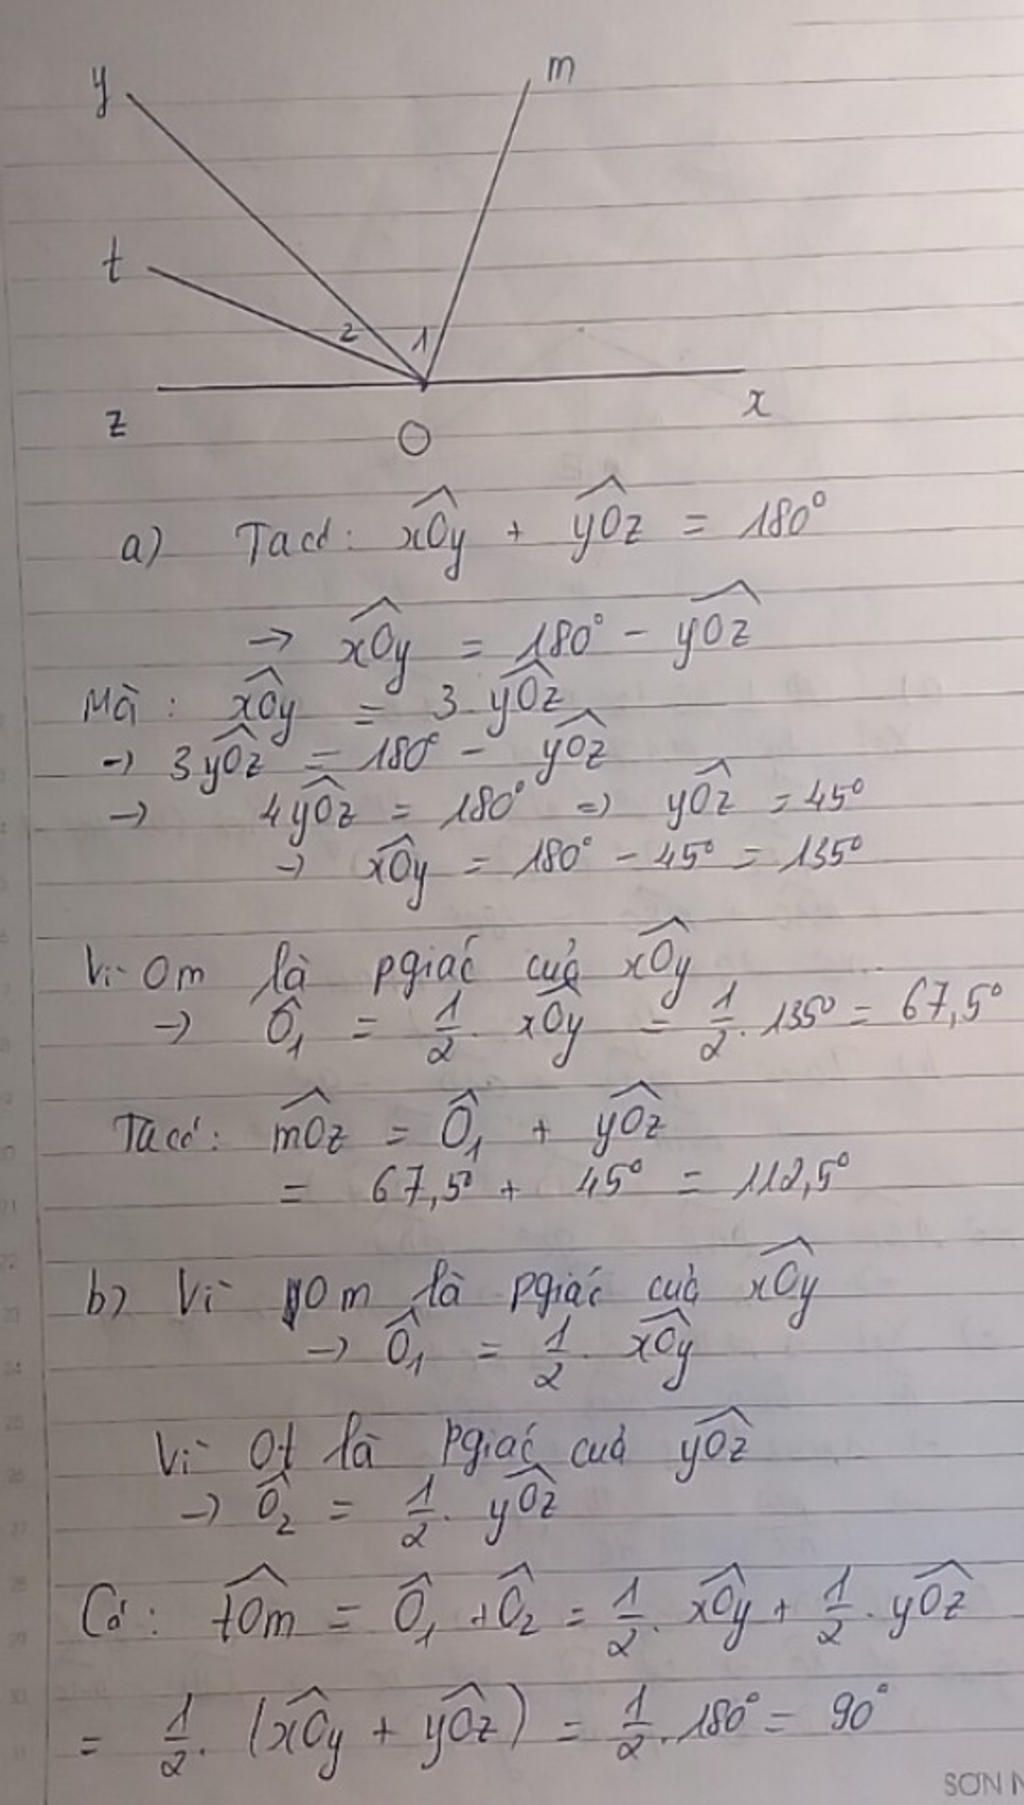 y
m
t
2
1
z
x
O
a) Ta có: xOy + yOz = 180°
→ xOy = 180° - yOz
Mà : xOy = 3. yOz
→ 3yOz = 180° - yOz
→ 4yOz = 180° ⇒ yOz = 45°
→ xOy = 180° - 45° = 135°
Vì Om là pgiác của xOy
→ Ô₁ = 1/2 . xOy = 1/2 . 135° = 67,5°
Ta có: mOz = Ô₁ + yOz
= 67,5° + 45° = 112,5°
b) Vì Om là pgiác của xOy
→ Ô₁ = 1/2 . xOy
Vì Ot là pgiác của yOz
→ Ô₂ = 1/2 . yOz
Có: tOm = Ô₁ + Ô₂ = 1/2 . xOy + 1/2 . yOz
= 1/2 . (xOy + yOz) = 1/2 . 180° = 90°
SƠN